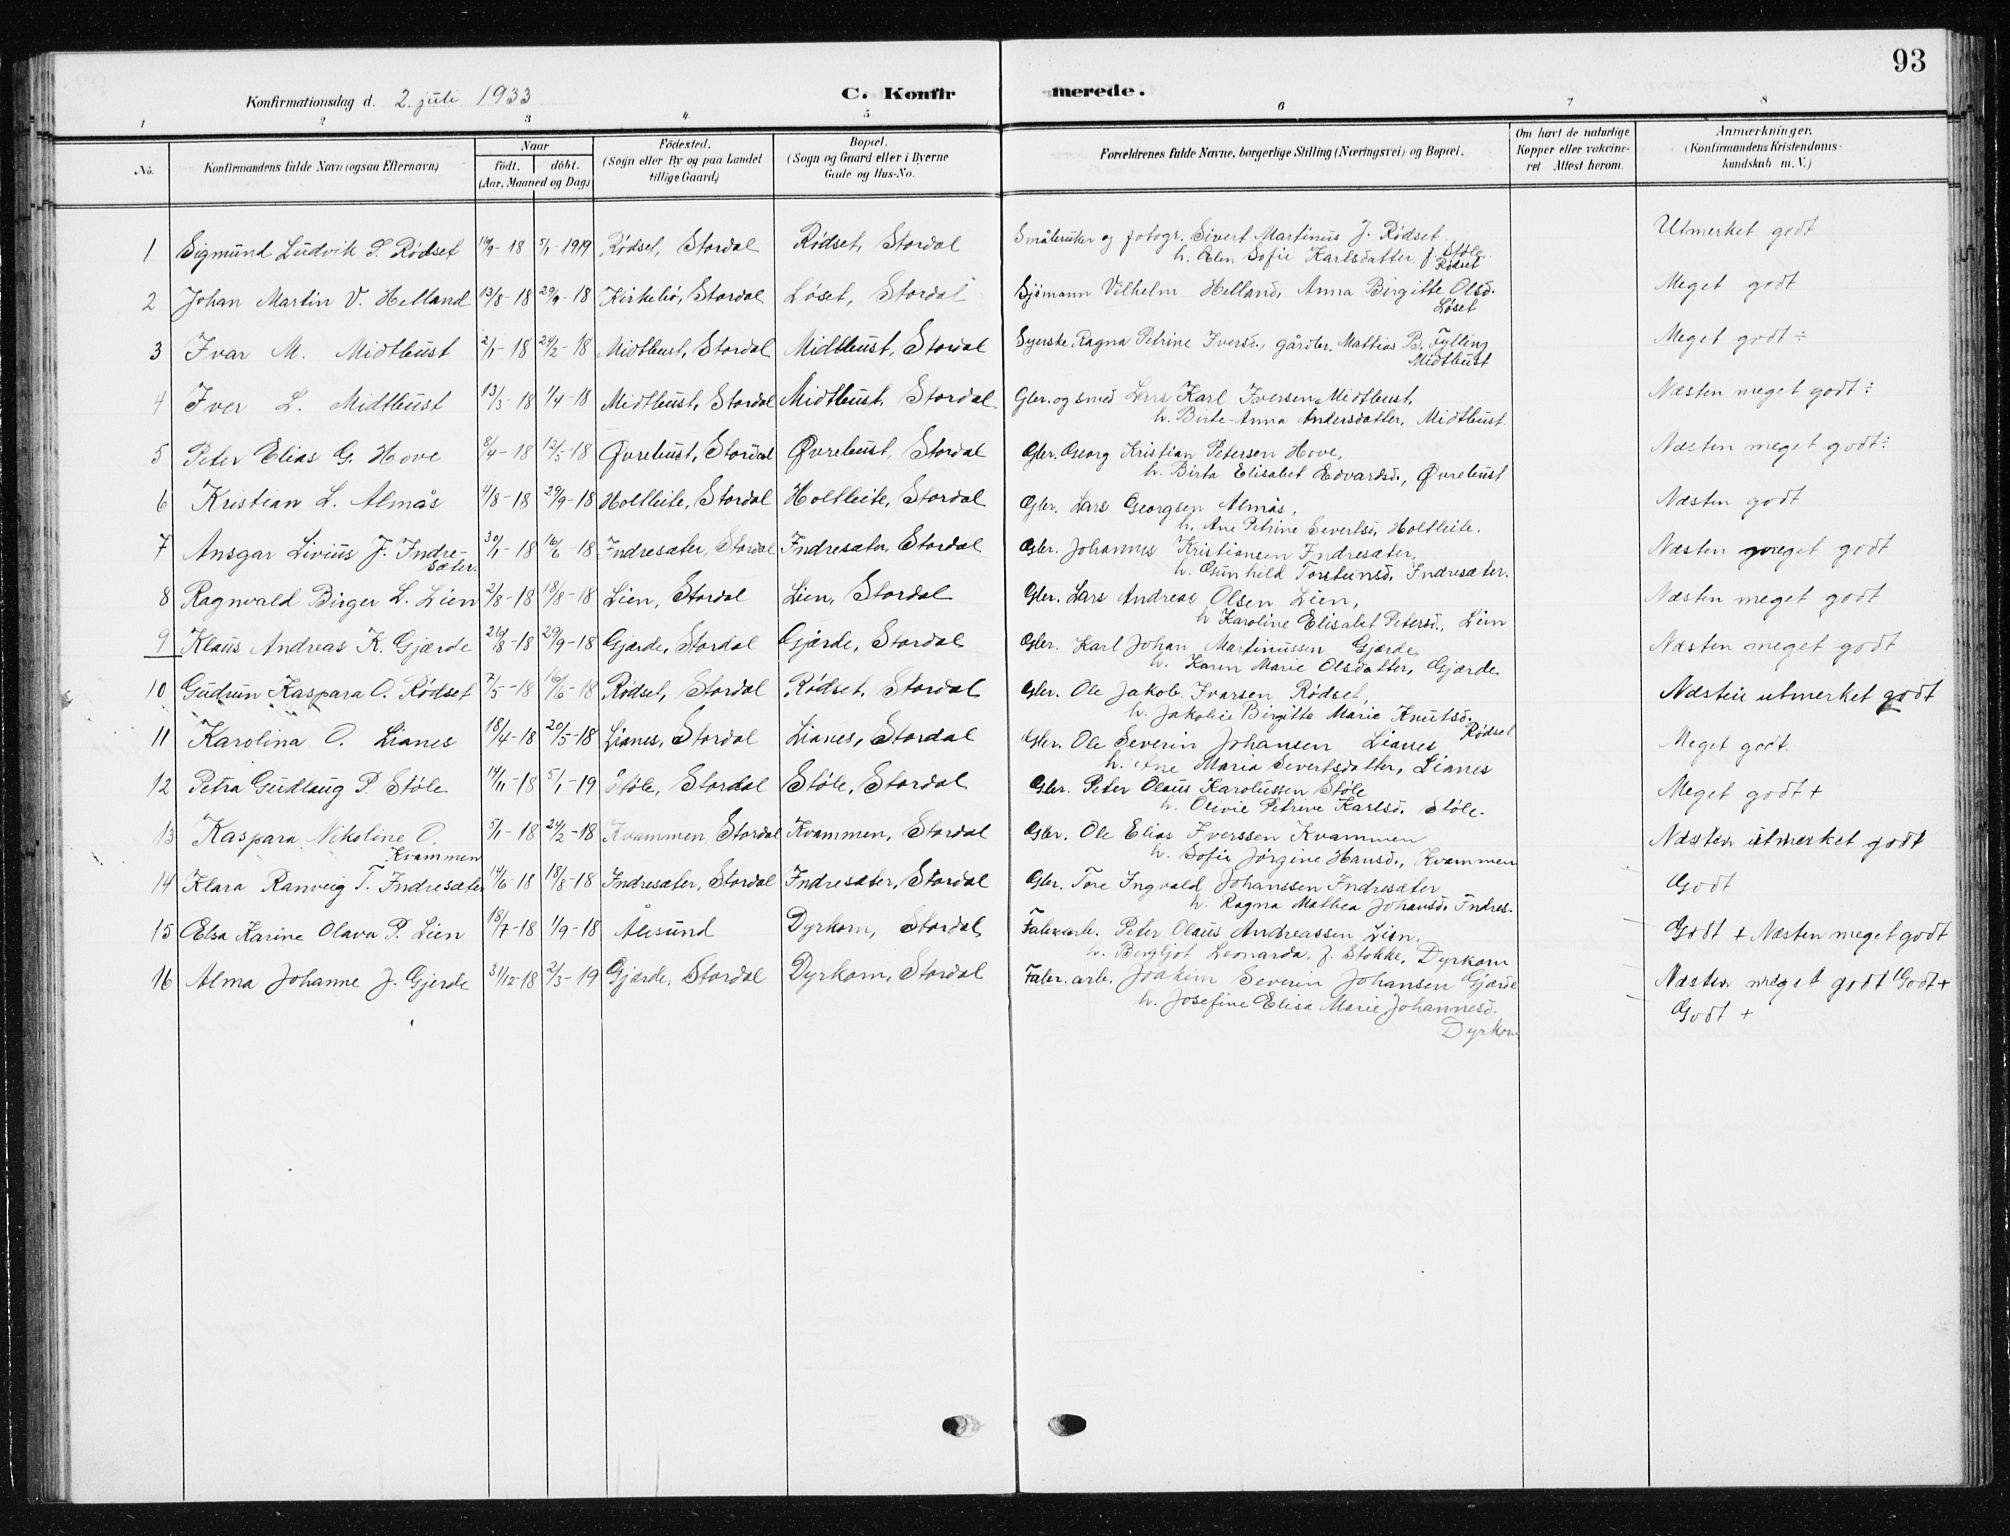 93
Konfirmationsdag d. 2. juli 1933
C. Konfirmerede.
1 2 3 4 5 6 7 8
No. Konfirmandens fulde Navn (ogsaa Efternavn) Naar født. døbt. (Aar, Maaned og Dag) Fødested. (Sogn eller By og paa Landet tillige Gaard) Bopæl. (Sogn og Gaard eller i Byerne Gade og Hus-No. Forældrenes fulde Navne, borgerlige Stilling (Næringsvei) og Bopæl. Om havt de naturlige Kopper eller vakcineret Attest herom. Anmærkninger. (Konfirmandens Kristendomskundskab m. V.)
1 Sigmund Ludvik S. Rødset 16/9-18 5/1-1919 Rødset, Stordal Rødset, Stordal Småbruker og fotogr. Sivert Martinus J. Rødset Utmerket godt
h. Elen Sofie Karlsdatter f. Støle
Rødset
2 Johan Martin V. Helland 13/8-18 29/9-18 Kirkebø, Stordal Løset, Stordal Sjømann Vilhelm Helland, Anna Birgitte Olsd. Meget godt
Løset
3 Ivar M. Midtbust 2/1-18 24/2-18 Midtbust, Stordal Midtbust, Stordal Syerske Ragna Petrine Iversd., gårdbr. Mattias B. Fylling Meget godt ÷
Midtbust
4 Iver L. Midtbust 13/3-18 1/4-18 Midtbust, Stordal Midtbust, Stordal Gbr. og smed Lars Karl Iversen Midtbust, Næsten meget godt ÷
h. Birte-Anna Andersdatter, Midtbust
5 Peter Elias G. Hove 8/4-18 12/5-18 Øvrebust, Stordal Øvrebust, Stordal Gbr. Georg Kristian Petersen Hove, Næsten meget godt ÷
h. Birta Elisabet Edvardsd., Øvrebust
6 Kristian L. Almås 4/8-18 29/9-18 Holtleite, Stordal Holtleite, Stordal Gbr. Lars Georgsen Almås, Næsten godt
h. Ane Petrine Sivertsd. Holtleite.
7 Ansgar Livius J. Indre- 30/1-18 16/6-18 Indresæter, Stordal Indresæter, Stordal Gbr. Johannes Kristiansen Indresæter, Næsten meget godt
sæter. h. Gunhild Torsteinsd. Indresæter.
8 Ragnvald Birger L. Lien 2/8-18 18/8-18 Lien, Stordal Lien, Stordal Gbr. Lars Andreas Olsen Lien, Næsten meget godt
h. Karoline Elisabet Petersd., Lien
9 Klaus Andreas K. Gjærde 26/8-18 29/9-18 Gjærde, Stordal Gjærde, Stordal Gbr. Karl Johan Martinussen Gjærde Næsten meget godt
h. Karen Marie Olsdatter, Gjærde
10 Gudrun Kaspara O. Rødset 7/5-18 16/6-18 Rødset, Stordal Rødset, Stordal Gbr. Ole Jakob Ivarsen Rødset, Næsten utmerket godt
h. Jakobie Birgitte Marie Knutsd.
Rødset
11 Karolina O. Lianes 18/4-18 20/5-18 Lianes, Stordal Lianes, Stordal Gbr. Ole Severin Johansen Lianes Meget godt.
h. Ane Maria Sivertsdatter, Lianes
12 Petra Gudlaug P. Støle 14/11-18 5/1-19 Støle, Stordal Støle, Stordal Gbr. Peter Olaus Karolussen Støle Meget godt +
h. Olivie Petrine Karlsd. Støle.
13 Kaspara Nikoline O. 5/1-18 24/2-18 Kvammen, Stordal Kvammen, Stordal Gbr. Ole Elias Iverssen Kvammen Næsten utmerket godt
Kvammen h. Sofie Jørgine Hansd., Kvammen
14 Klara Ranveig T. Indresæter 14/6-18 18/8-18 Indresæter, Stordal Indresæter, Stordal Gbr. Tore Ingvald Johanssen Indresæter Godt
h. Ragna Mathea Johansd. Indres.
15 Elsa Karine Olava P. Lien 18/7-18 1/9-18 Ålesund Dyrkorn, Stordal Peter Olaus Andreassen Lien. Godt + Næsten meget godt
h. Bergljot Leonarda, f. Stokke, Dyrkorn
16 Alma Johanne J. Gjerde 31/12-18 2/3-19 Gjærde, Stordal Dyrkorn, Stordal Fabr. arb. Joakim Severin Johansen Gjærde Næsten meget godt Godt +
h. Josefine Elisa Marie Johannesd. Godt +
Dyrkorn